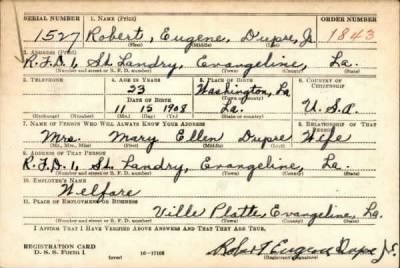 SERIAL NUMBER 1. NAME (Print) ORDER NUMBER
1527 Robert, Eugene, Dupre, Jr 1843
(First) (Middle) (Last)
2. ADDRESS (Print)
R.F.D. 1, St. Landry, Evangeline, La.
(Number and street or R. F. D. number) (Town) (County) (State)
3. TELEPHONE 4. AGE IN YEARS 5. PLACE OF BIRTH 6. COUNTRY OF CITIZENSHIP
23 Washington, La
DATE OF BIRTH (Town or county)
11 15 1908 La. U.S.A.
(Exchange) (Number) (Mo.) (Day) (Yr.) (State or country)
7. NAME OF PERSON WHO WILL ALWAYS KNOW YOUR ADDRESS 8. RELATIONSHIP OF THAT PERSON
Mrs. Mary Ellen Dupre Wife
(Mr., Mrs., Miss) (First) (Middle) (Last)
9. ADDRESS OF THAT PERSON
R.F.D. 1, St. Landry, Evangeline, La.
(Number and street or R. F. D. number) (Town) (County) (State)
10. EMPLOYER'S NAME
Welfare
11. PLACE OF EMPLOYMENT OR BUSINESS
Ville Platte, Evangeline, La.
(Number and street or R. F. D. number) (Town) (County) (State)
I AFFIRM THAT I HAVE VERIFIED ABOVE ANSWERS AND THAT THEY ARE TRUE.
REGISTRATION CARD
D. S. S. Form 1 (over) 16-17105 Robert Eugene Dupre Jr.
(Registrant's signature)